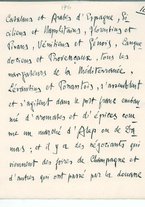 Catalans et Arabes d'Espagne, Si-
ciliens et Napolitains, Florentins et
Pisans, Vénitiens et Génois, Langue-
dociens et Provençaux, tous les
navigateurs de la Méditerranée,
Levantins et Ponantais, s'assemblent
et s'agitent dans le port franc embau-
mé d'aromates et d'épices com-
me un marché d'Alep ou de Da-
mas ; et il y a les négociants qui
viennent des foires de Champagne et
d'autres qui ont passé par la douane